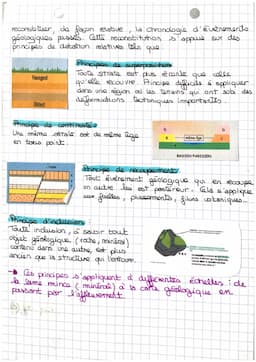 reconstituer, de façon relative, la chronologie d'événements
géologiques passés. Cette reconstitution s'appuie sur des
principes de datation relatives tels que:
Principe de superposition:
Toute strate est plus récente que celles
qu'elle recouvre. Principe difficile à appliquer
dans une région où les terrains qui ont subi des
déformations tectoniques importantes
Récent
Principe de continuité:
Une même strate est de même âge
en tous point.
même âge
BASSIN PARISIEN
Principe de recoupement:
Tout événement géologique qui en recoupe
un autre lui est postérieur. Cela s'applique
aux failles, plissements,
Principe d'inclusion:
Toute inclusion, à savoir tout
objet géologique (roche, minéral)
contenu dans une autre, est plus
ancien que la structure qui l'entoure.
Ces principes s'appliquent à différentes échelles: de
la lame mince (minéral) à la carte géologique en
passant par l'affleurement.